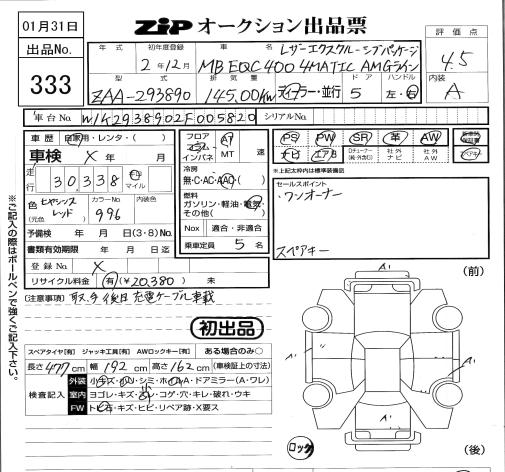 01月31日
ZiP オークション出品票
出品No.
333
評価点
4.5
内装
A
年式 初年度登録 車名
2年12月
レザーエクスクルーシブパッケージ
MB EQC 400 4MATIC AMGライン
型式 排気量 ドア ハンドル
ZAA-293890 145.00Kw ディーラー・並行 5 左・右
車台No. W1K2938902F005820 シリアルNo.
車歴 自家用・レンタ・( )
車検 X 年 月
走行 30,338 Km マイル
色 (元色) ヒヤシンスレッド
カラーNo. 996
内装色
予備検 年 月 日(3・8)No.
書類有効期限 年 月 日迄
登録No. X
リサイクル料金 有(¥20,380) 未
フロア コラム インパネ AT MT 速
冷房
無・C・AC・AAC・( )
燃料
ガソリン・軽油・電気・その他( )
Nox 適合・非適合
乗車定員 5 名
PS PW SR 革 AW
ナビ エアB 社外ナビ 社外AW
※上記太枠内は標準装備品
セールスポイント
・ワンオーナー
スペアキー
(注意事項) 取、手後日 充電ケーブル車載
初出品
スペアタイヤ[有] ジャッキ工具[有] AWロックキー[有] ある場合のみ○
長さ 477cm 幅 192cm 高さ 162cm (車検証上の寸法)
検査記入
外装 小キズ・小ハン・シミ・ホール・A・ドアミラー(A・ワレ)
室内 ヨゴレ・キズ・スレ・コゲ・穴・キレ・破れ・ウキ
FW トビ石・キズ・ヒビ・リペア跡・X要ス
※ご記入の際はボールペンで強くご記入下さい。
(前)
A'
A'
A'
A'
A'
ロック
(後)